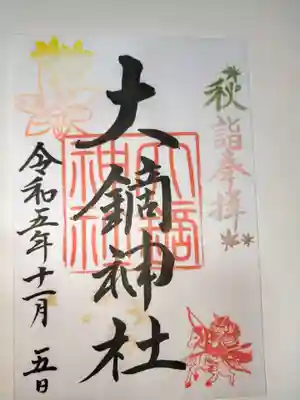 秋詣奉拝
大鏑神社
令和五年十一月五日